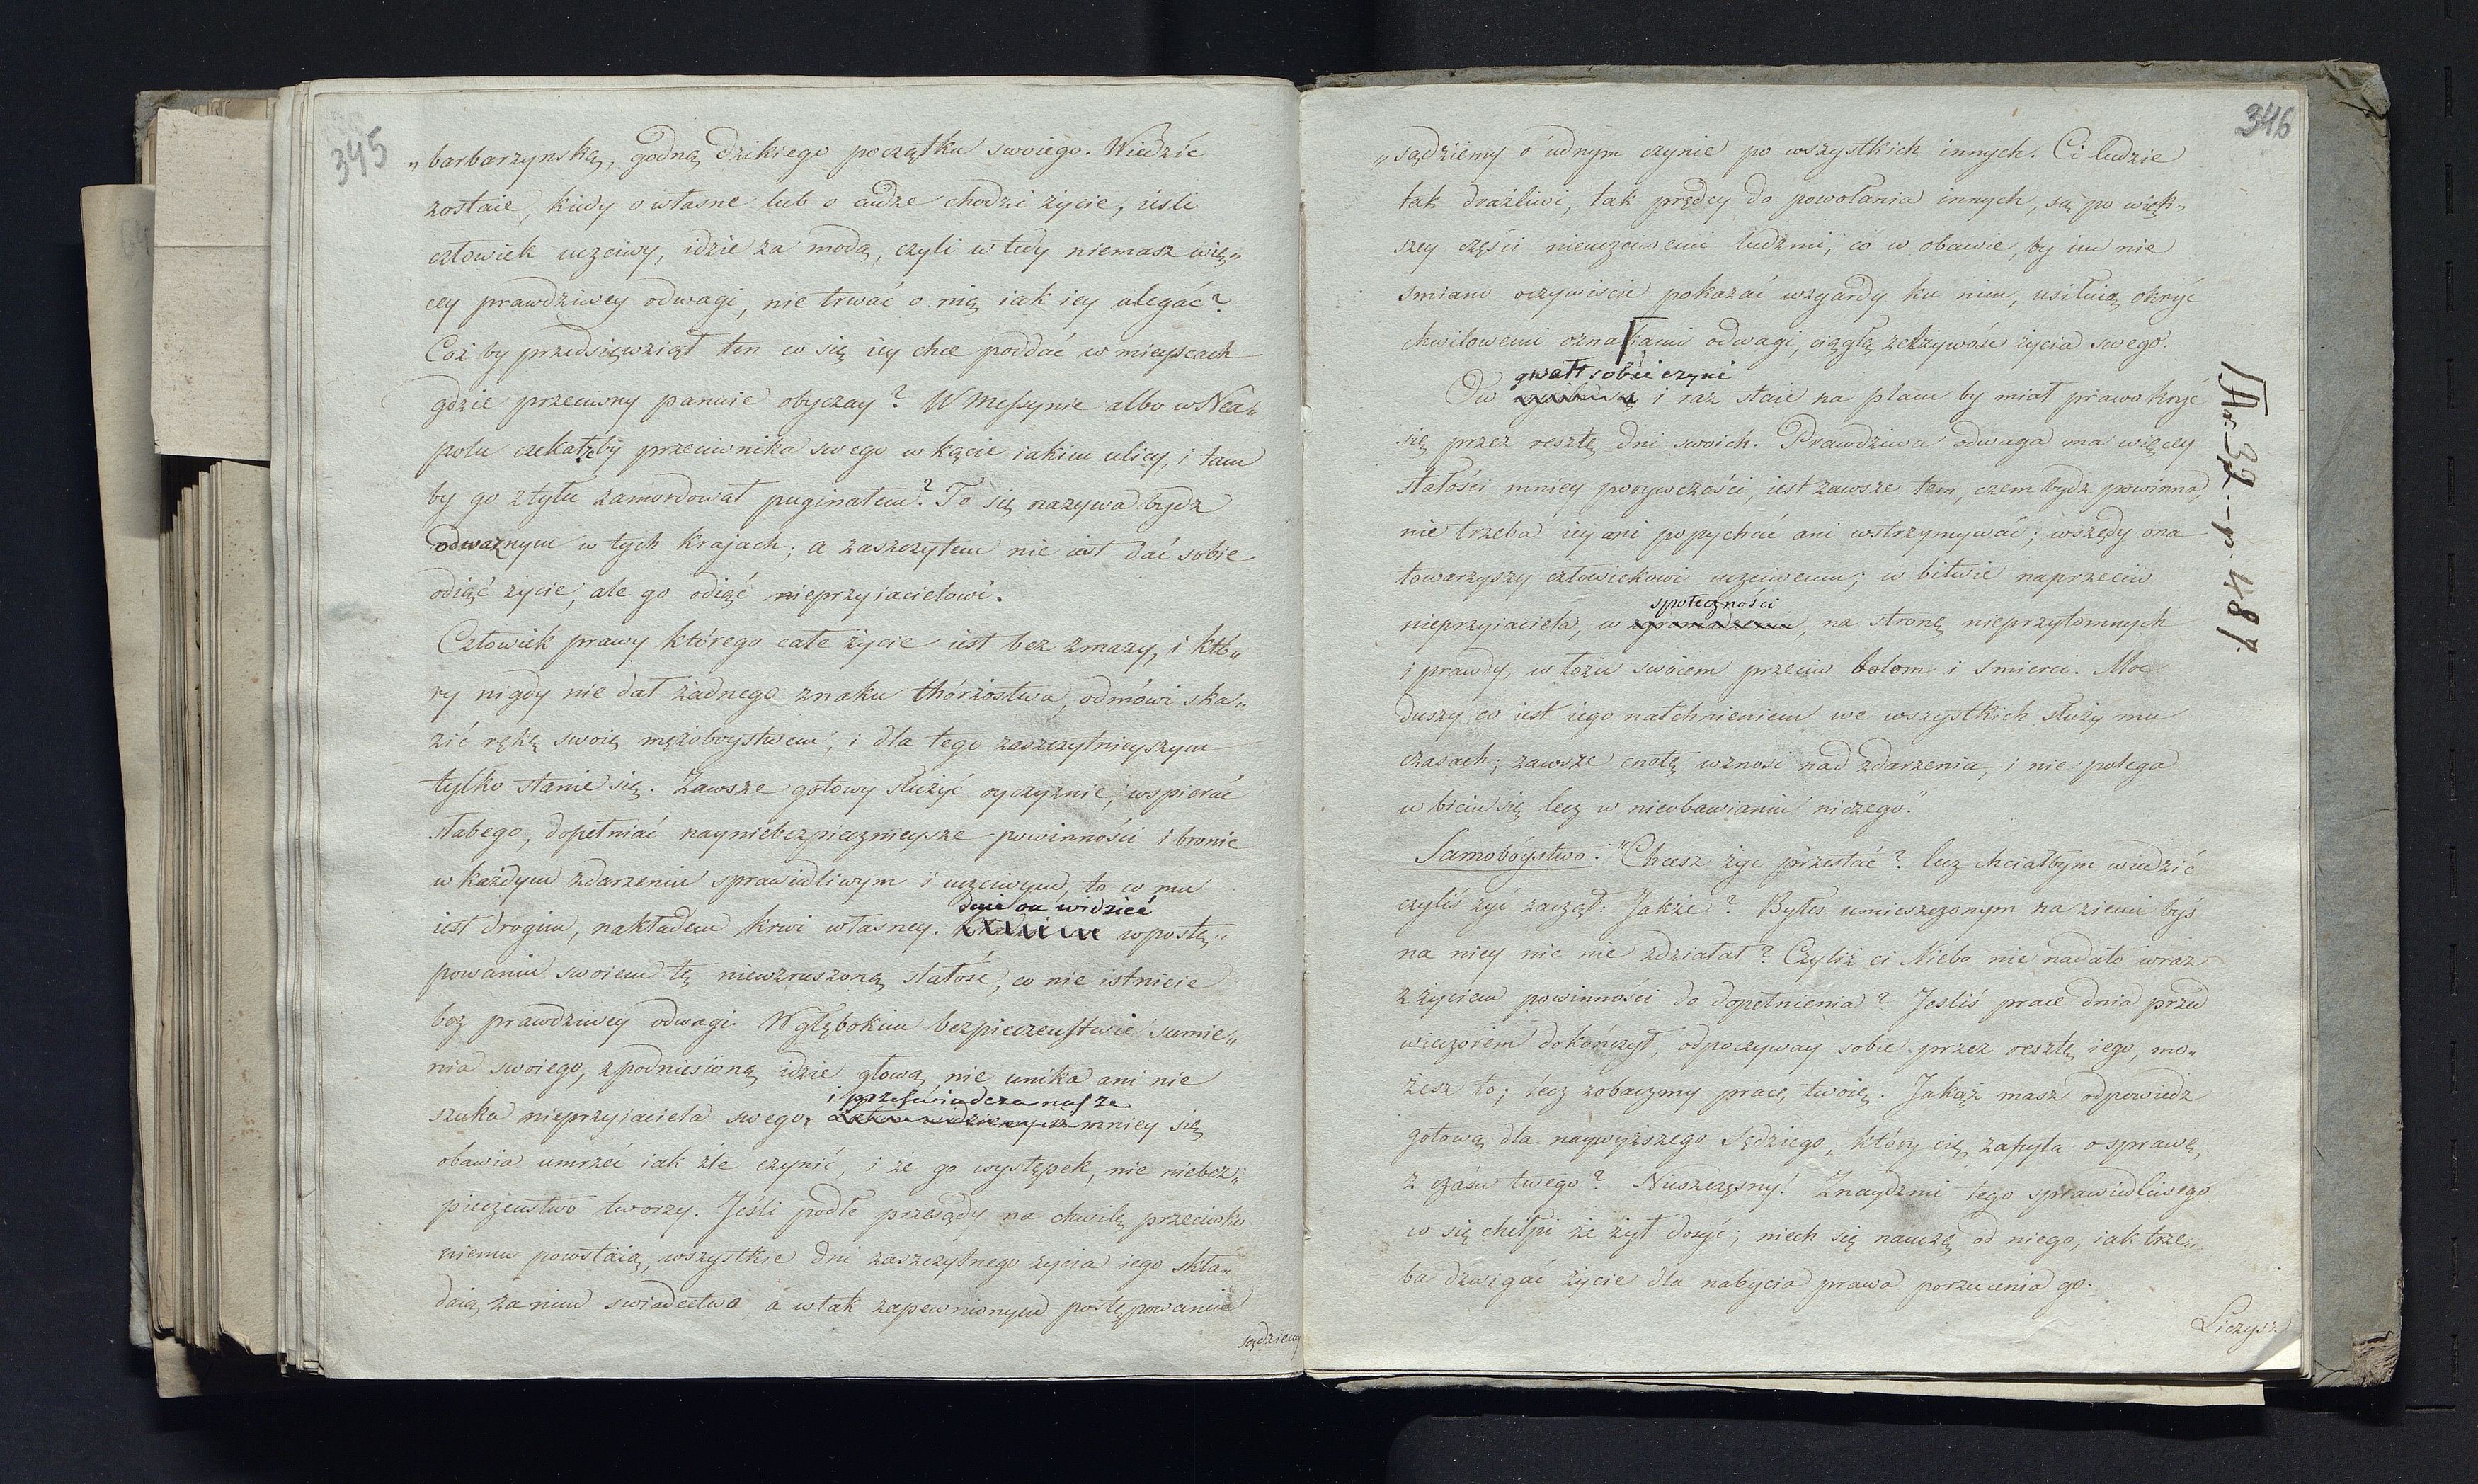 345
„barbarzynską, godną dzikiego początku swoiego. Wiedzić
zostaie, kiedy o własne lub o cudze chodzi życie, ieśli
człowiek uczciwy, idzie za modą, czyli wtedy niemasz wię„
cey prawdziwey odwagi, nie trwać o nią iak iey ulegać?
Coż by przedsięwziął ten co się iey chce poddać w mieyscach
gdzie przeciwny panuie obyczay? W Messynie albo w Nea„
polu czekałżby przeciwnika swego w kącie iakim ulicy, i tam
by go ztyłu zamordował puginałem? To się nazywa bydz
odważnym w tych krajach; a zaszczytem nie iest dać sobie
odiąć życie, ale go odiąć nieprzyiacielowi.
Człowiek prawy którego całe życie iest bez zmazy, i któ„
ry nigdy nie dał żadnego znaku thórzostwa, odmówi ska„
zić rękę swoię mężoboystwem, i dla tego zaszczytnieyszym
tylko stanie się. Zawsze gotowy służyć oyczyznie, wspierać
słabego, dopełniać nayniebezpiecznieysze powinności i bronić
w każdym zdarzeniu sprawiedliwym i uczciwym, to co mu
daie on widzieć
iest drogim, nakładem krwi własney. wpostę„
powaniu swoiem tę niewzruszoną stałość, co nie istnieie
bez prawdziwey odwagi. W głębokim bezpieczeństwie sumie„
nia swoiego, z podniesioną idzie głową, nie unika ani nie
i przeświadcza nas że
szuka nieprzyiaciela swego, mniey się
obawia umrzeć iak źle czynić, i że go występek, nie niebez„
pieczeństwo tworzy. Jeśli podłe przesądy na chwilę przeciwko
niemu powstaią, wszystkie dni zaszczytnego życia iego skła„
daią za nim swiadectwo, a wtak zapewnionym postępowaniu
sądziemy
346
„sądziemy o iednym czynie po wszystkich innych. Ci ludzie
tak drażliwi, tak prędcy do powołania innych, są po więk„
szey części nieuczciwemi ludzmi, co w obawie, by im nie
smiano oczywiscie pokazać wzgardy ku nim, usiłuią okryć
chwilowemi oznakami odwagi, ciągłą zelżywość życia swego.
gwałt sobie czyni
Ów i raz staie na placu by miał prawo kryć
się przez resztę dni swoich. Prawdziwa odwaga ma więcey
stałości mniey porywczości, iest zawsze tem, czem bydz powinna,
nie trzeba iey ani popychać ani wstrzymywać; wszędy ona
towarzyszy człowiekowi uczciwemu; w bitwie naprzeciw
społeczności
nieprzyiaciela, w zgromadzeniu, na stronę nieprzytomnych
i prawdy, w łożu swoiem przeciw bolom i smierci. Moc
duszy co iest iego natchnieniem we wszystkich służy mu
czasach; zawsze cnotę wznosi nad zdarzenia, i nie polega
w biciu się lecz w nieobawianiu niczego."
Samobóystwo: "Chcesz żyć przestać? lecz chciałbym wiedzić
czyliś żyć zaczął: Jakże? Byłeś umieszczonym na ziemi byś
na niey nic nie zdziałał? Czyliż ci Niebo nie nadało wraz
z życiem powinności do dopełnienia? Jesliś prace dnia przed
wieczorem dokończył, odpoczyway sobie przez resztę iego, mo„
żesz to; lecz zobaczmy pracę twoię. Jakąż masz odpowiedz
gotową dla naywyższego Sędziego, który cię zapyta o sprawę
z czasu twego? Nieszczęsny! Znaydzmi tego sprawiedliwego
co się chełpi że żył dosyć; niech się nauczę od niego, iak trze„
ba dzwigać życie dla nabycia prawa porzucenia go.
Liczysz
Ar: 32 - p. 487.